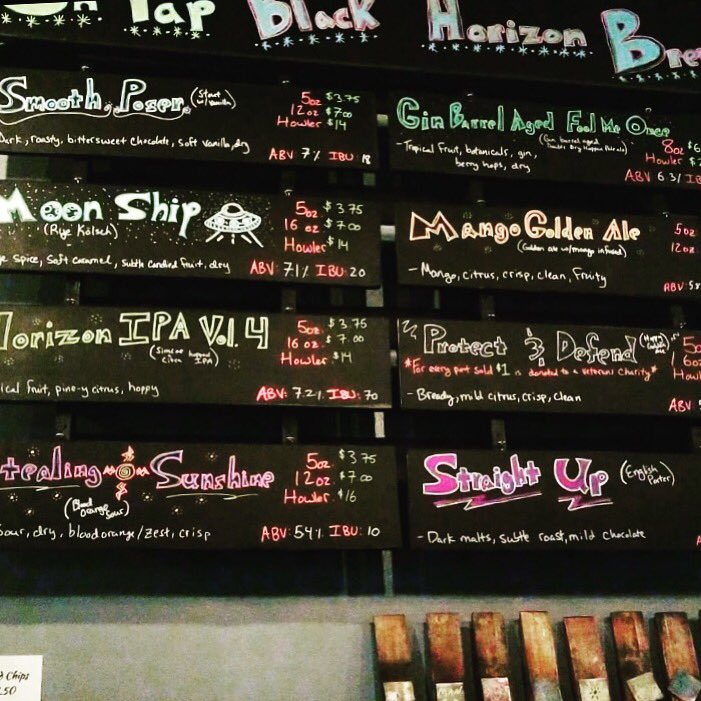 On Tap Black Horizon Bre
Smooth Poser (Stout w/vanilla)
Dark, roasty, bittersweet chocolate, soft vanilla, dry
5oz $3.75
12oz $7.00
Howler $14
ABV 7% IBU: 18
Moon Ship
(Rye Kölsch)
Spice, Soft caramel, subtle candied fruit, dry
5oz $3.75
16oz $7.00
Howler $14
ABV: 7.1% IBU: 20
Horizon IPA Vol. 4
ical fruit, pine-y citrus, hoppy
5oz $3.75
16oz $7.00
Howler $14
ABV: 7.2% IBU: 70
tealing Sunshine
(Blood orange sour)
Sour, dry, blood orange/zest, crisp
5oz $3.75
12oz $7.00
Howler $16
ABV: 5.4% IBU: 10
Gin Barrel Aged Fool Me Once
- Tropical Fruit, botanicals, gin,
berry hops, dry
8oz $6
Howler $
ABV 6.3% IB
Mango Golden Ale
(Golden ale w/mango infused)
- Mango, citrus, crisp, clean, fruity
5oz
12oz
ABV: 5
Protect & Defend
*For every pint sold $1 is donated to a Veterans Charity*
- Bready, mild citrus, crisp, clean
5o
6oz
Howl
ABV:
Straight Up (English Porter)
- Dark malts, subtle roast, mild chocolate
A
Chips
.50